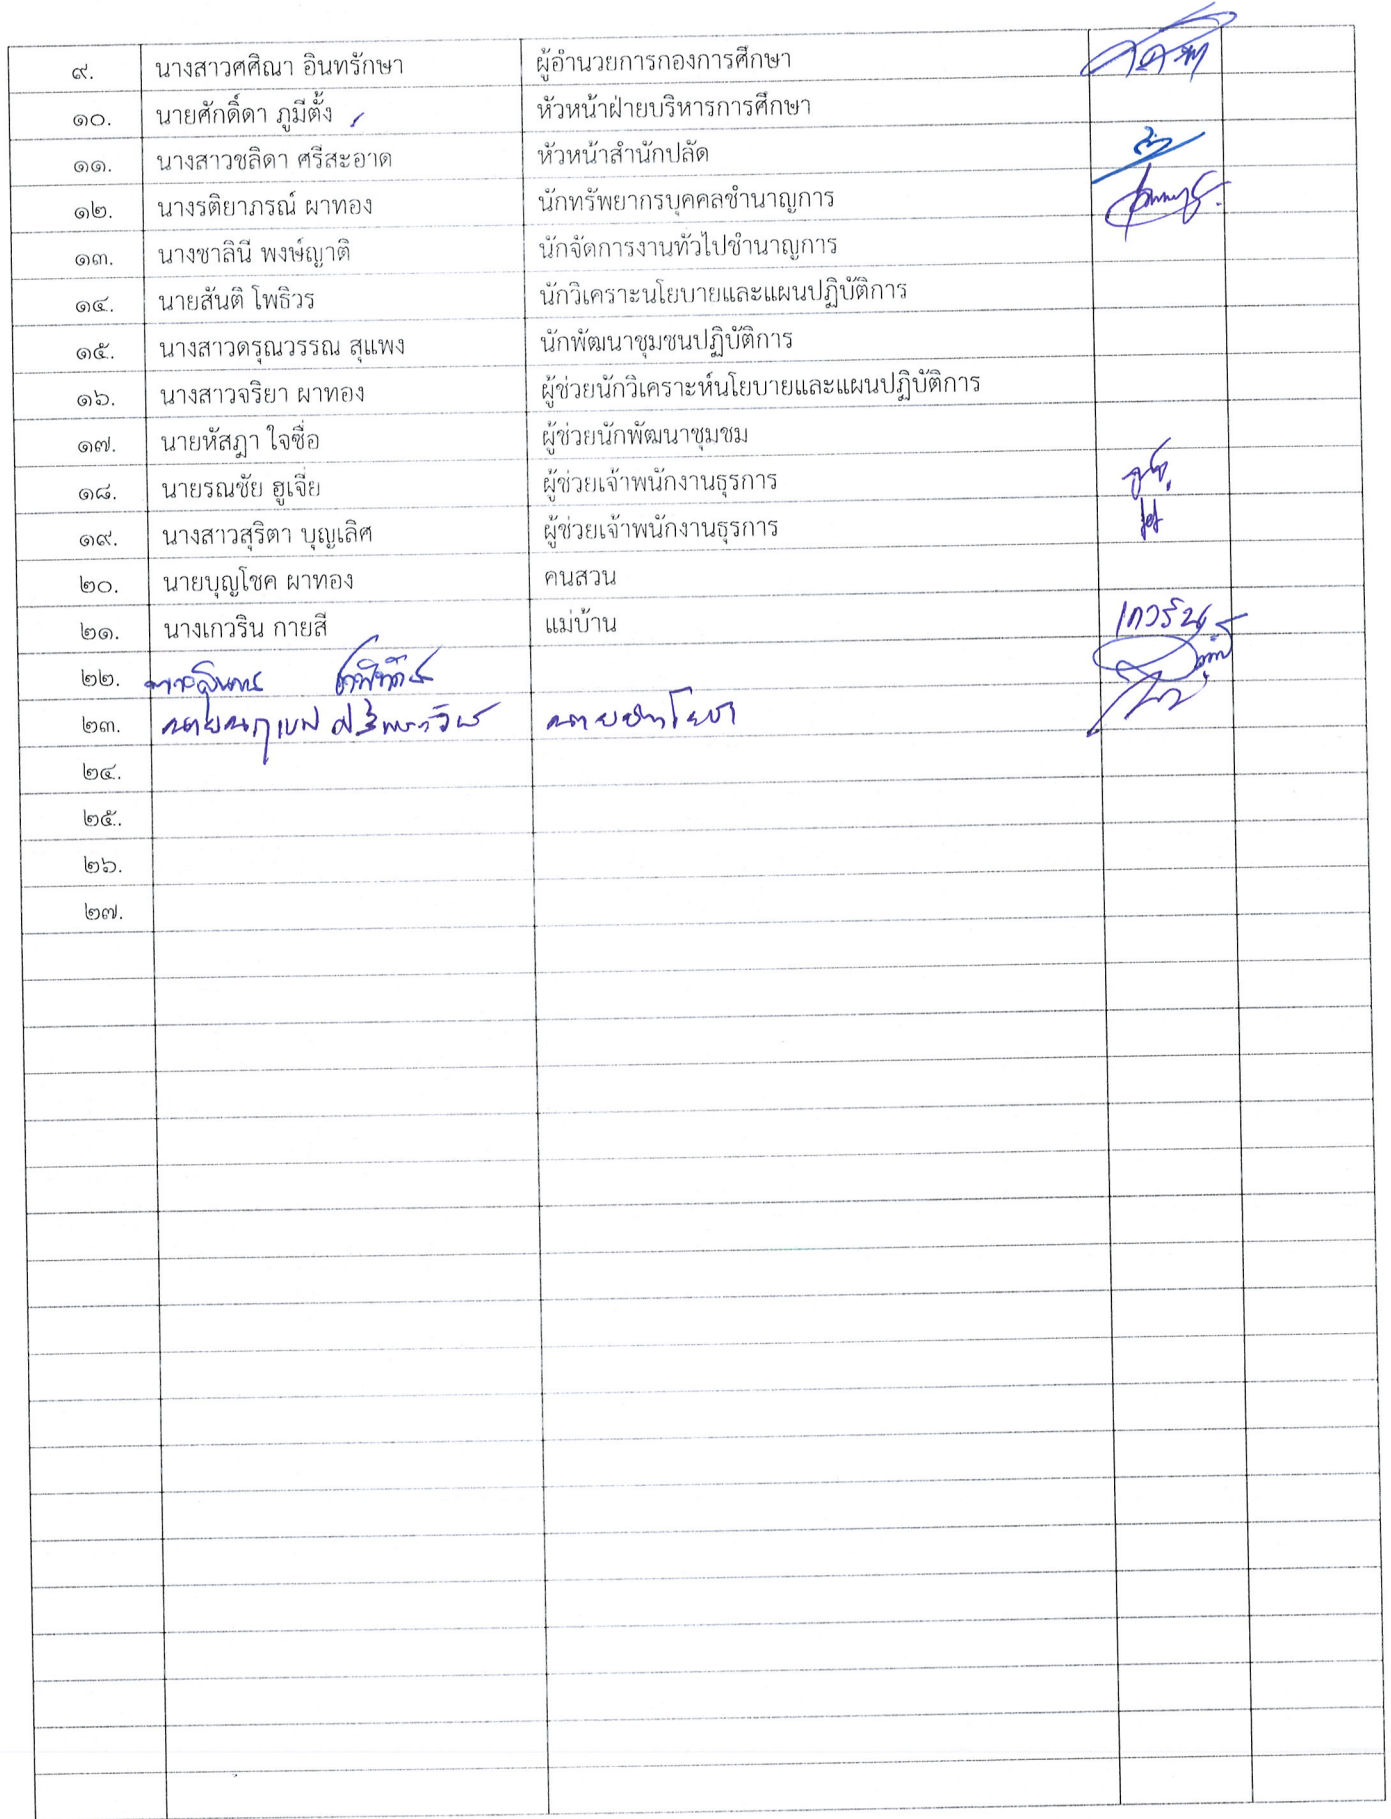 ๙. นางสาวศศิณา อินทรักษา ผู้อำนวยการกองการศึกษา
๑๐. นายศักดิ์ดา ภูมีตั้ง หัวหน้าฝ่ายบริหารการศึกษา
๑๑. นางสาวชลิดา ศรีสะอาด หัวหน้าสำนักปลัด
๑๒. นางรติยาภรณ์ ผาทอง นักทรัพยากรบุคคลชำนาญการ
๑๓. นางชาลินี พงษ์ญาติ นักจัดการงานทั่วไปชำนาญการ
๑๔. นายสันติ โพธิวร นักวิเคราะนโยบายและแผนปฏิบัติการ
๑๕. นางสาวดรุณวรรณ สุแพง นักพัฒนาชุมชนปฏิบัติการ
๑๖. นางสาวจริยา ผาทอง ผู้ช่วยนักวิเคราะห์นโยบายและแผนปฏิบัติการ
๑๗. นายหัสฎา ใจซื่อ ผู้ช่วยนักพัฒนาชุมชม
๑๘. นายรณชัย ฮูเจี่ย ผู้ช่วยเจ้าพนักงานธุรการ
๑๙. นางสาวสุริตา บุญเลิศ ผู้ช่วยเจ้าพนักงานธุรการ
๒๐. นายบุญโชค ผาทอง คนสวน
๒๑. นางเกวริน กายสี แม่บ้าน เกวริน
๒๒.
๒๓. นายช่างโยธา
๒๔.
๒๕.
๒๖.
๒๗.